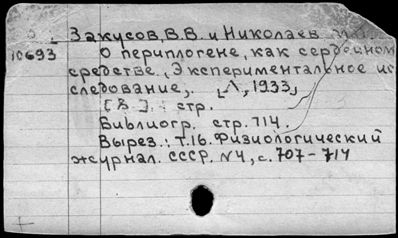 Закусов, В.В. и Николаев
10693 О периплогене, как сердечном
средстве. Экспериментальное ис
следование. [Л, 1933]
[8]. стр.
Библиогр. стр. 714.
Вырез.: Т.16. Физиологический
журнал. СССР. №4, с. 707-714